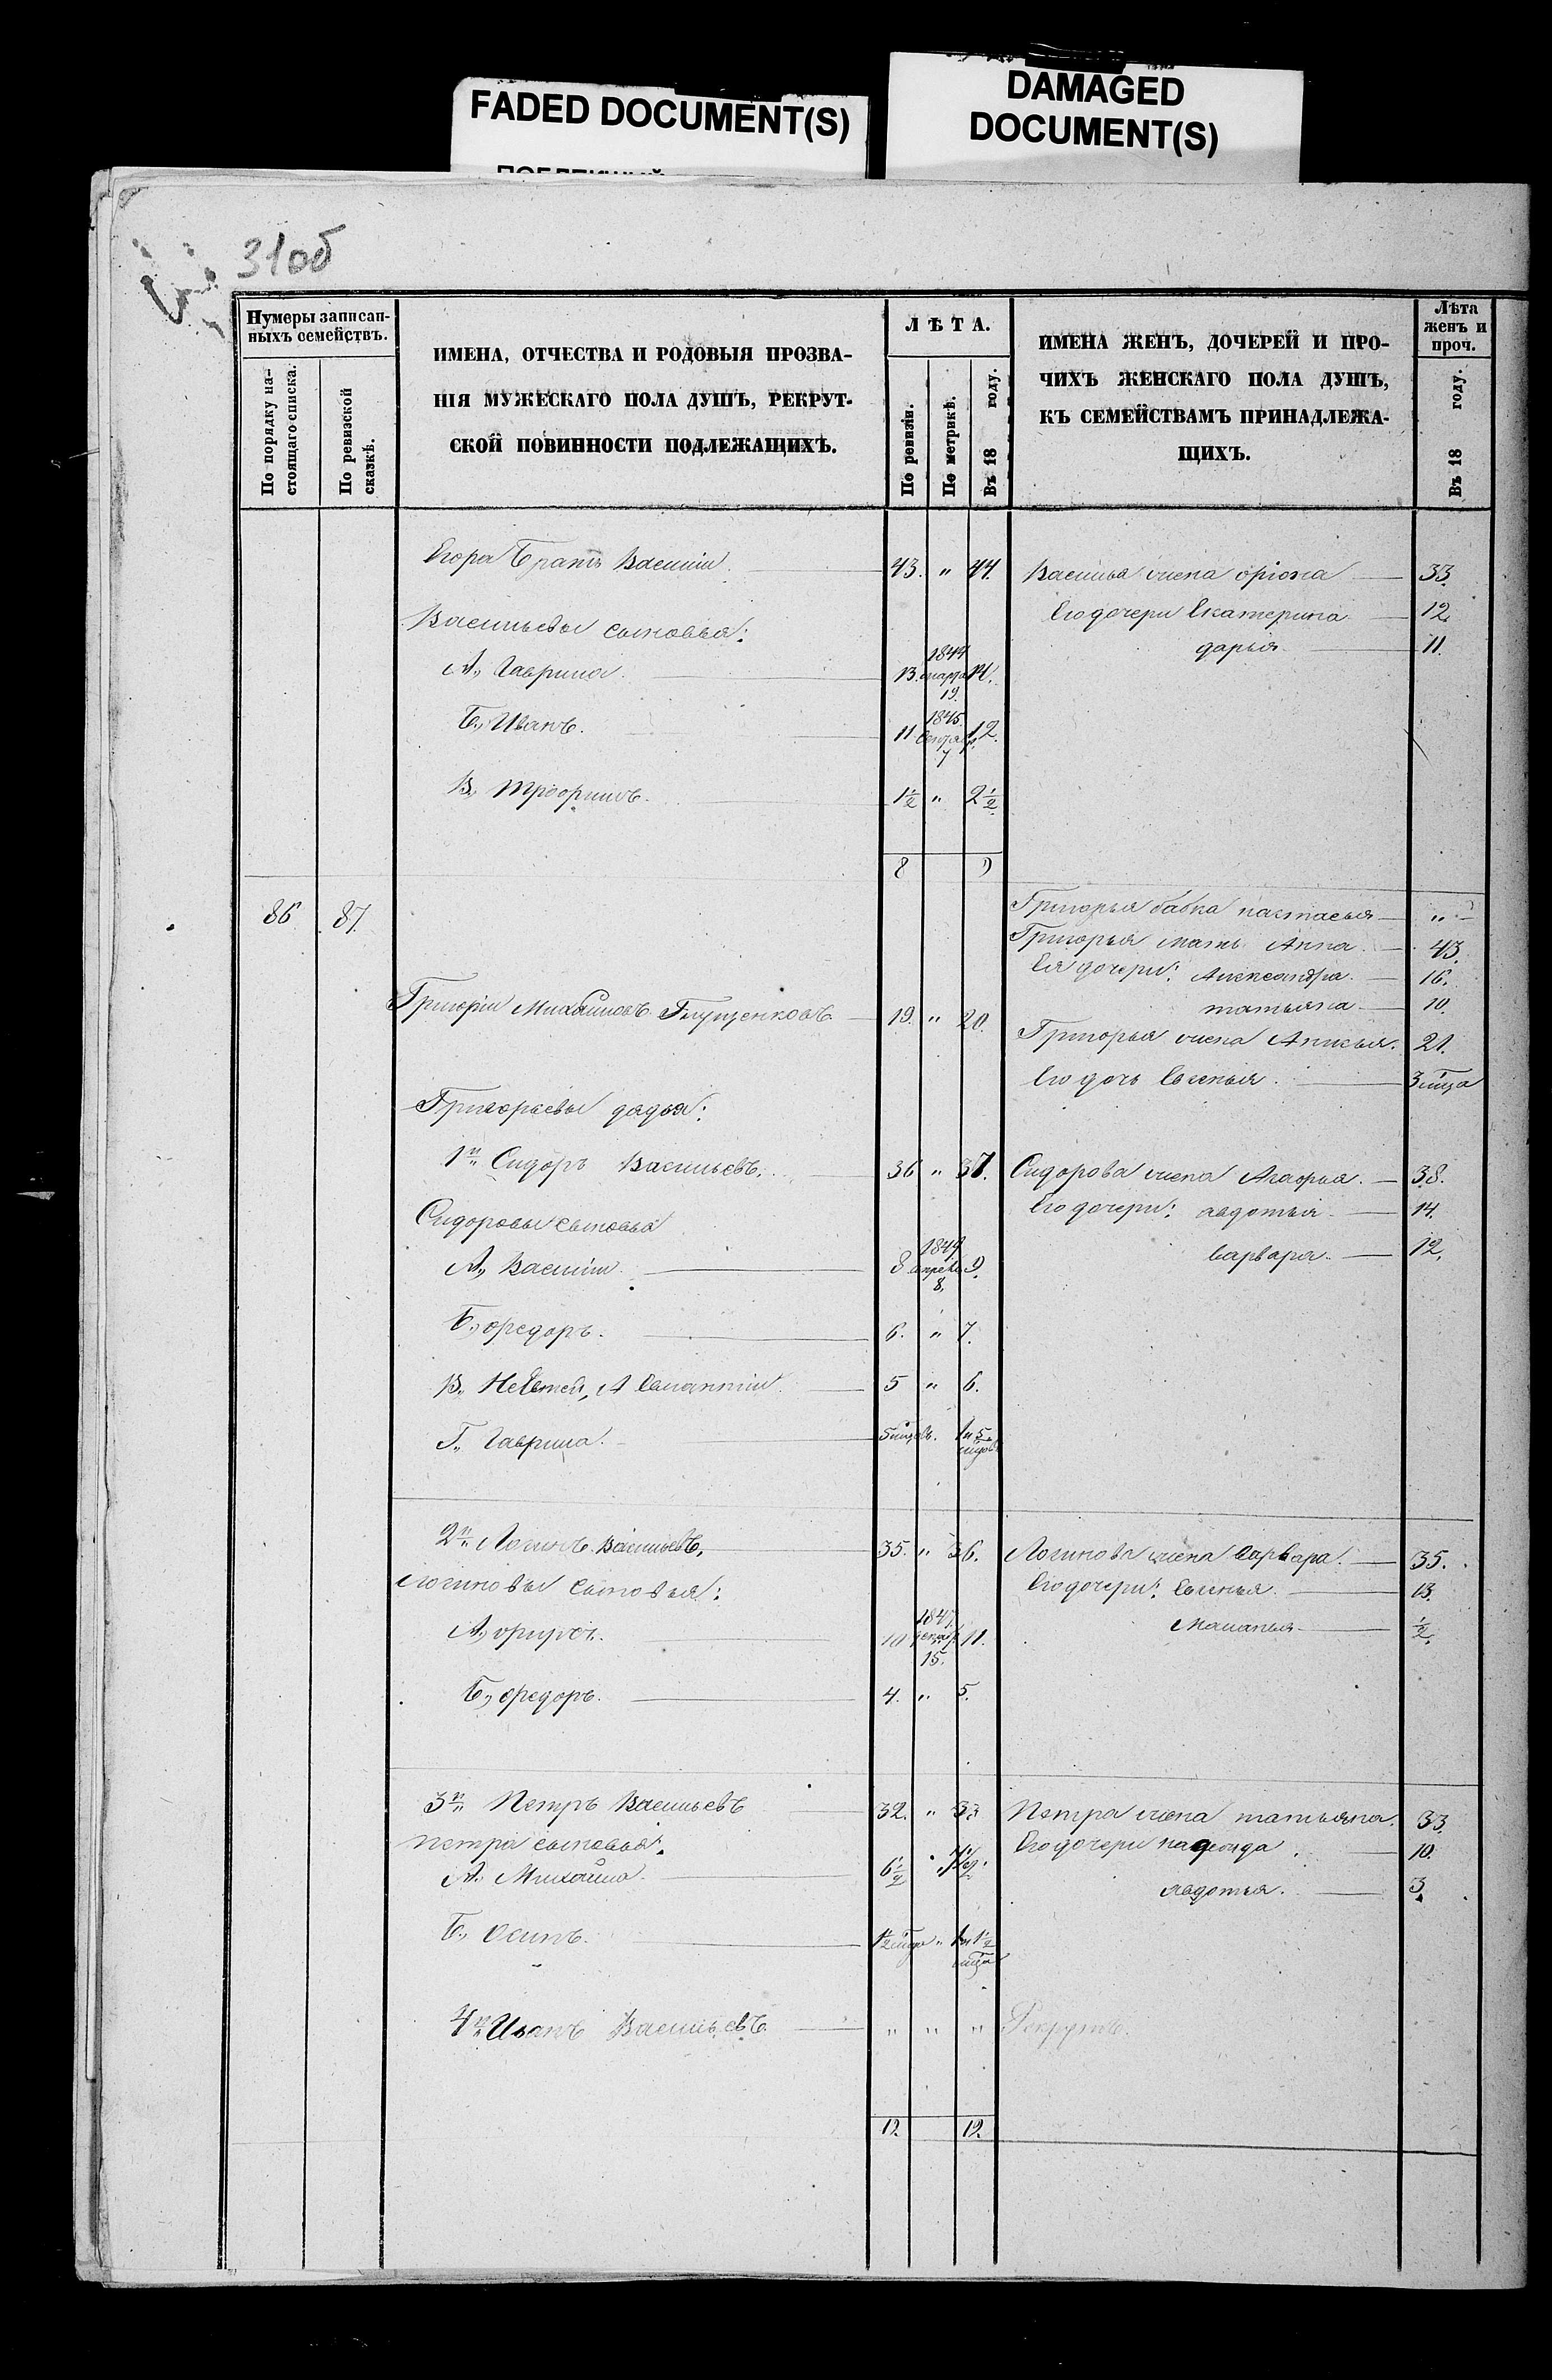 FADED DOCUMENT(S)
DAMAGED
DOCUMENT(S)
31об
Нумеры записан-
ныхъ семействъ.
По порядку на-
стоящаго списка.
По ревизской
сказкѣ.
ИМЕНА, ОТЧЕСТВА И РОДОВЫЯ ПРОЗВА-
НІЯ МУЖЕСКАГО ПОЛА ДУШЪ, РЕКРУТ-
СКОЙ ПОВИННОСТИ ПОДЛЕЖАЩИХЪ.
ЛѢТА.
По ревизіи.
По метрикѣ.
Въ 18 году.
ИМЕНА ЖЕНЪ, ДОЧЕРЕЙ И ПРО-
ЧИХЪ ЖЕНСКАГО ПОЛА ДУШЪ,
КЪ СЕМЕЙСТВАМЪ ПРИНАДЛЕЖА-
ЩИХЪ.
Лѣта
женъ и
проч.
Въ 18 году.
Егора Братъ Василій 43. " 44. Василья жена 33.
Его дочери Екатерина 12.
Васильевы сыновья:
дарья 11.
А., Гаврила 13. 1844 марта 19. 14.
Б., Иванъ. 11 1845. 12.
В., 1½ " 2½
8 9
86 87.
Григорья бабка настасья " 
Григорья мать Анна 43.
Ея дочери: Александра 16.
татьяна 10.
Григорій Михайловъ Глущенковъ 19. " 20.
Григорья жена Анисья. 21.
Его дочь Евгенья 3 мца
Григорьевы дядья:
1й Сидоръ Васильевъ. 36 " 37. Сидорова жена Агафья. 38.
Его дочери: авдотья 14.
Сидоровы сыновья
варвара. 12.
А., Василій 8 1849 апреля 8. 9.
Б., федоръ. 6. " 7.
В., 5 " 6.
Г., Гаврила. 5 мцовъ. 1 и 5 мцовъ
2й Логинъ Васильевъ, 35. " 36. Логинова жена варвара. 35.
Логиновы сыновья: Его дочери: Евгенья 13.
Маланья ½
А., 10 1847 декабр. 15. 11.
Б., федоръ. 4. " 5.
3й Петръ Васильевъ 32. " 33 Петра жена татьяна. 33.
петра сыновья: Его дочери 10.
А. Михайла 6½ " 7½
авдотья. 3.
Б., Осипъ. 1½ мца " 1 и 1½ мца
4й Иванъ Васильевъ " " " Рекрутъ.
12. 12.